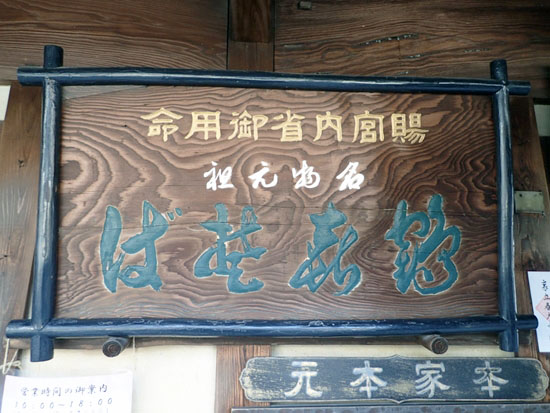 賜宮内省御用命
名物元祖
鶴喜そば
本家本元
営業時間の御案内
10:00-18:00